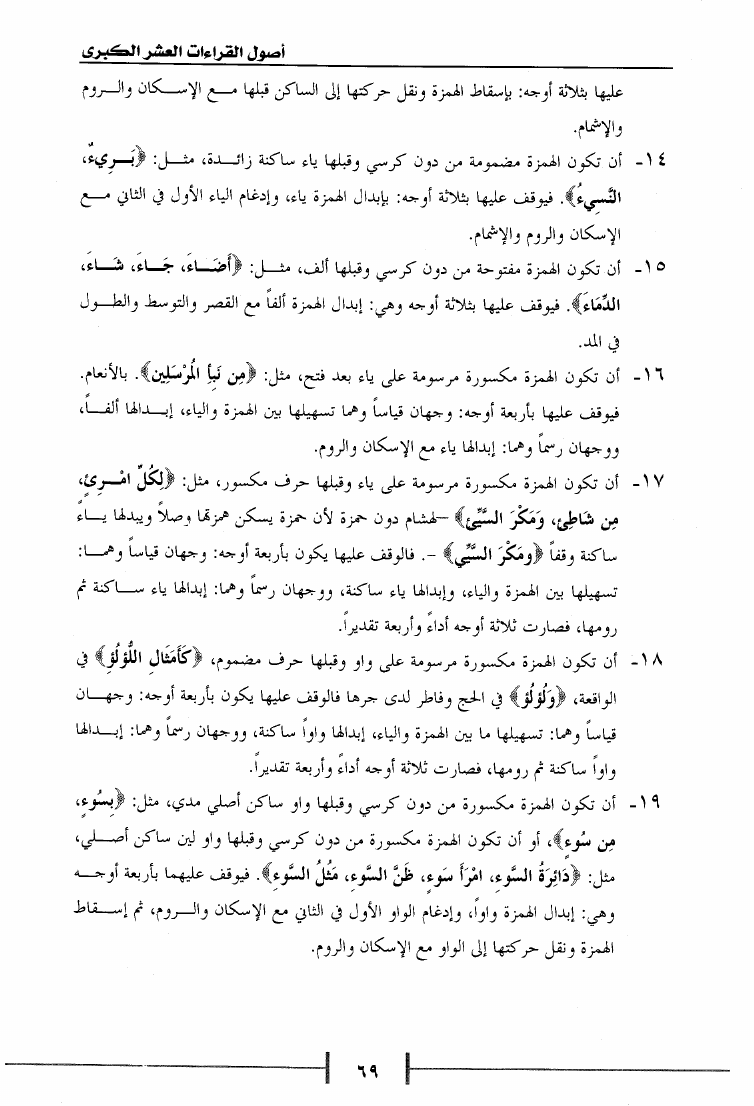 أصول القراءات العشر الكبرى
عليها بثلاثة أوجه: بإسقاط الهمزة ونقل حركتها إلى الساكن قبلها مع الإسكان والروم
والإشمام.
١٤- أن تكون الهمزة مضمومة من دون كرسي وقبلها ياء ساكنة زائدة، مثل: ﴿بَرِيءٌ،
النَّسِيءُ﴾. فيوقف عليها بثلاثة أوجه: بإبدال الهمزة ياء، وإدغام الياء الأول في الثاني مع
الإسكان والروم والإشمام.
١٥- أن تكون الهمزة مفتوحة من دون كرسي وقبلها ألف، مثل: ﴿أَضَاءَ، جَاءَ، شَاءَ،
الدِّمَاءَ﴾. فيوقف عليها بثلاثة أوجه وهي: إبدال الهمزة ألفاً مع القصر والتوسط والطول
في المد.
١٦- أن تكون الهمزة مكسورة مرسومة على ياء بعد فتح، مثل: ﴿مِن نَبَإِ الْمُرْسَلِين﴾. بالأنعام.
فيوقف عليها بأربعة أوجه: وجهان قياساً وهما تسهيلها بين الهمزة والياء، إبدالها ألفاً،
ووجهان رسماً وهما: إبدالها ياء مع الإسكان والروم.
١٧- أن تكون الهمزة مكسورة مرسومة على ياء وقبلها حرف مكسور، مثل: ﴿لِكُلِّ امْرِئٍ،
مِن شَاطِئِ، وَمَكْرَ السَّيِّئِ﴾ –لهشام دون حمزة لأن حمزة يسكن همزتها وصلاً ويبدلها ياء
ساكنة وقفاً ﴿ومَكْرَ السَّيِّي﴾ -. فالوقف عليها يكون بأربعة أوجه: وجهان قياساً وهما:
تسهيلها بين الهمزة والياء، وإبدالها ياء ساكنة، ووجهان رسماً وهما: إبدالها ياء ساكنة ثم
رومها، فصارت ثلاثة أوجه أداءً وأربعة تقديراً.
١٨- أن تكون الهمزة مكسورة مرسومة على واو وقبلها حرف مضموم، ﴿كَأَمْثَالِ اللُّؤْلُؤِ﴾ في
الواقعة، ﴿وَلُؤْلُؤٍ﴾ في الحج وفاطر لدى جرها فالوقف عليها يكون بأربعة أوجه: وجهان
قياساً وهما: تسهيلها ما بين الهمزة والياء، إبدالها واواً ساكنة، ووجهان رسماً وهما: إبدالها
واواً ساكنة ثم رومها، فصارت ثلاثة أوجه أداءً وأربعة تقديراً.
١٩- أن تكون الهمزة مكسورة من دون كرسي وقبلها واو ساكن أصلي مدي، مثل: ﴿بِسُوءٍ،
مِن سُوءٍ﴾، أو أن تكون الهمزة مكسورة من دون كرسي وقبلها واو لين ساكن أصلي،
مثل: ﴿دَائِرَةُ السَّوْءِ، امْرَأَ سَوْءٍ، ظَنَّ السَّوْءِ، مَثَلُ السَّوْءِ﴾. فيوقف عليهما بأربعة أوجه
وهي: إبدال الهمزة واواً، وإدغام الواو الأول في الثاني مع الإسكان والروم، ثم إسقاط
الهمزة ونقل حركتها إلى الواو مع الإسكان والروم.
٦٩